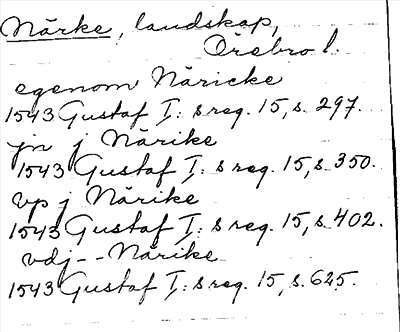 Närke, landskap,
Örebro l.
egenom Näricke
1543 Gustaf I:s reg. 15, s. 297.
jn j Närike
1543 Gustaf I:s reg. 15, s. 350.
vp j Närike
1543 Gustaf I:s reg. 15, s. 402.
vdj -- Närike
1543 Gustaf I:s reg. 15, s. 625.